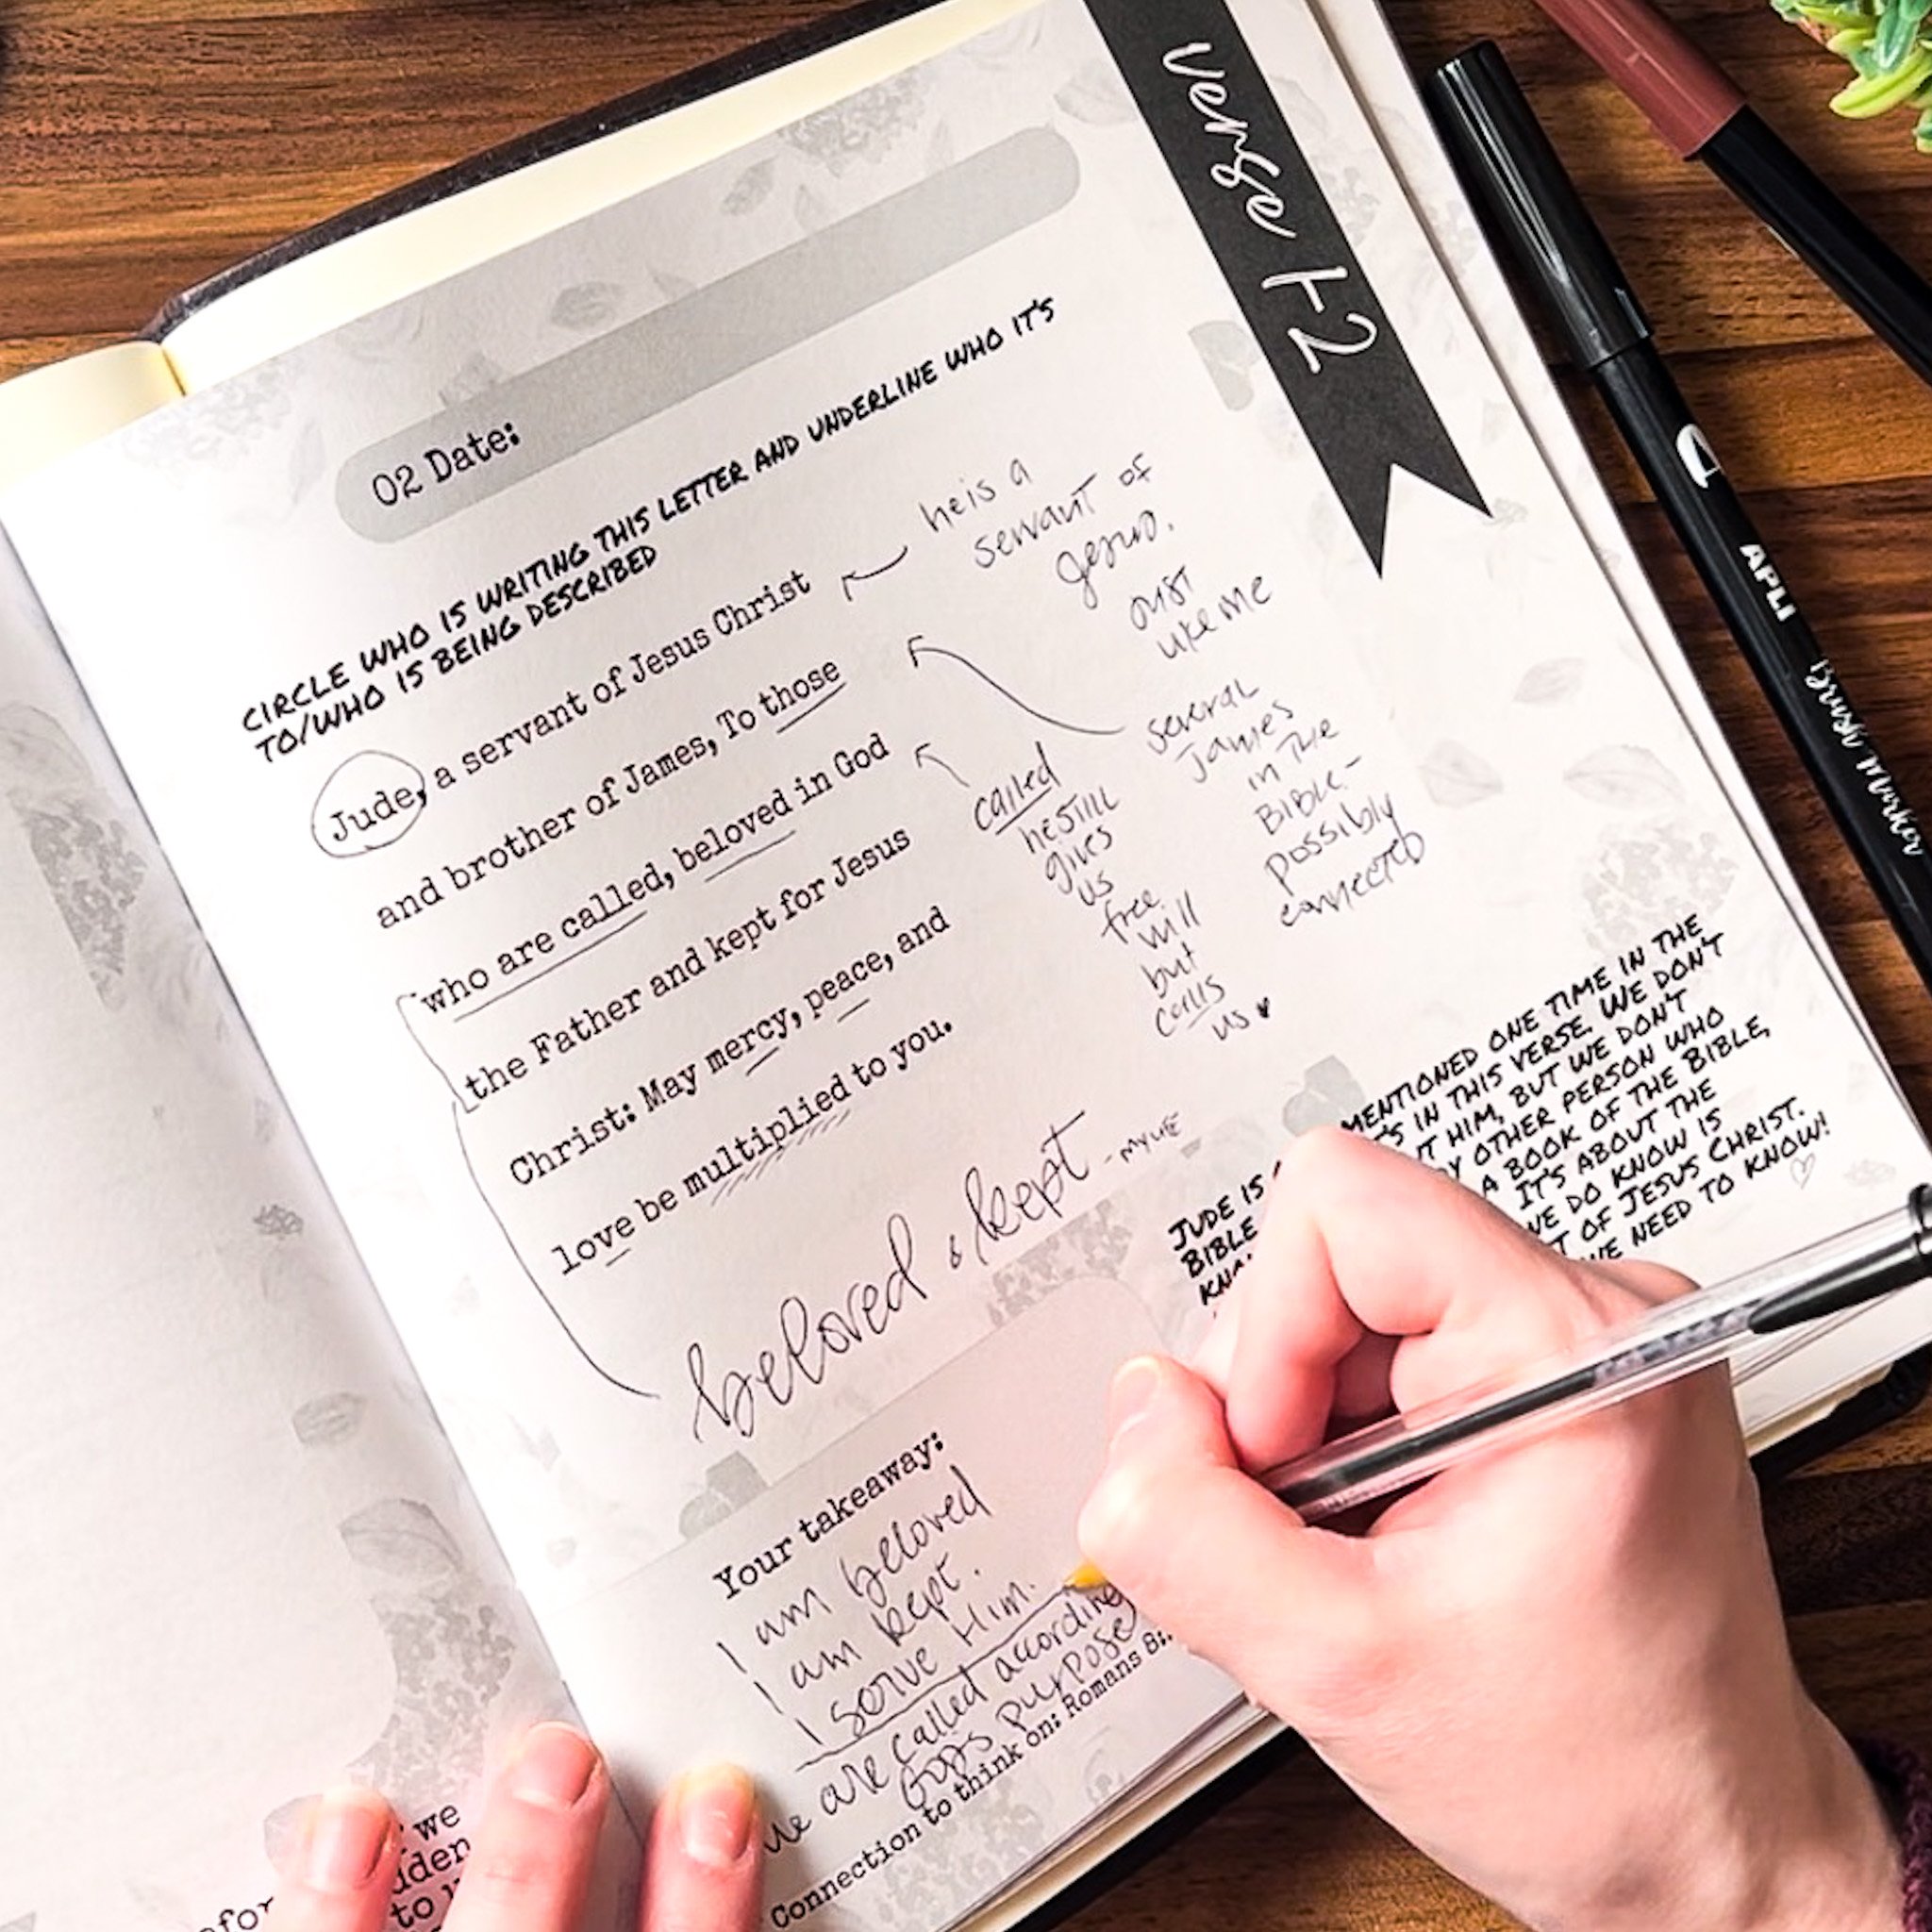 verse 1-2
02 Date:
CIRCLE WHO IS WRITING THIS LETTER AND UNDERLINE WHO IT'S
TO/WHO IS BEING DESCRIBED
Jude, a servant of Jesus Christ
and brother of James, To those
who are called, beloved in God
the Father and kept for Jesus
Christ: May mercy, peace, and
love be multiplied to you.
he is a
servant of
Jesus.
Just
like me
several
James
in the
Bible -
possibly
connected
called
he still
gives
us
free
will
but
calls
us ♥
beloved & kept
JUDE IS
MENTIONED ONE TIME IN THE
BIBLE
IN THIS VERSE. WE DON'T
HIM, BUT WE DON'T
OTHER PERSON WHO
A BOOK OF THE BIBLE,
IT'S ABOUT THE
DO KNOW IS
OF JESUS CHRIST.
NEED TO KNOW!
Your takeaway:
I am beloved
I am kept.
I serve Him.
We are called according
GODS purpose
Connection to think on: Romans
we
to
APLI Brush Marker